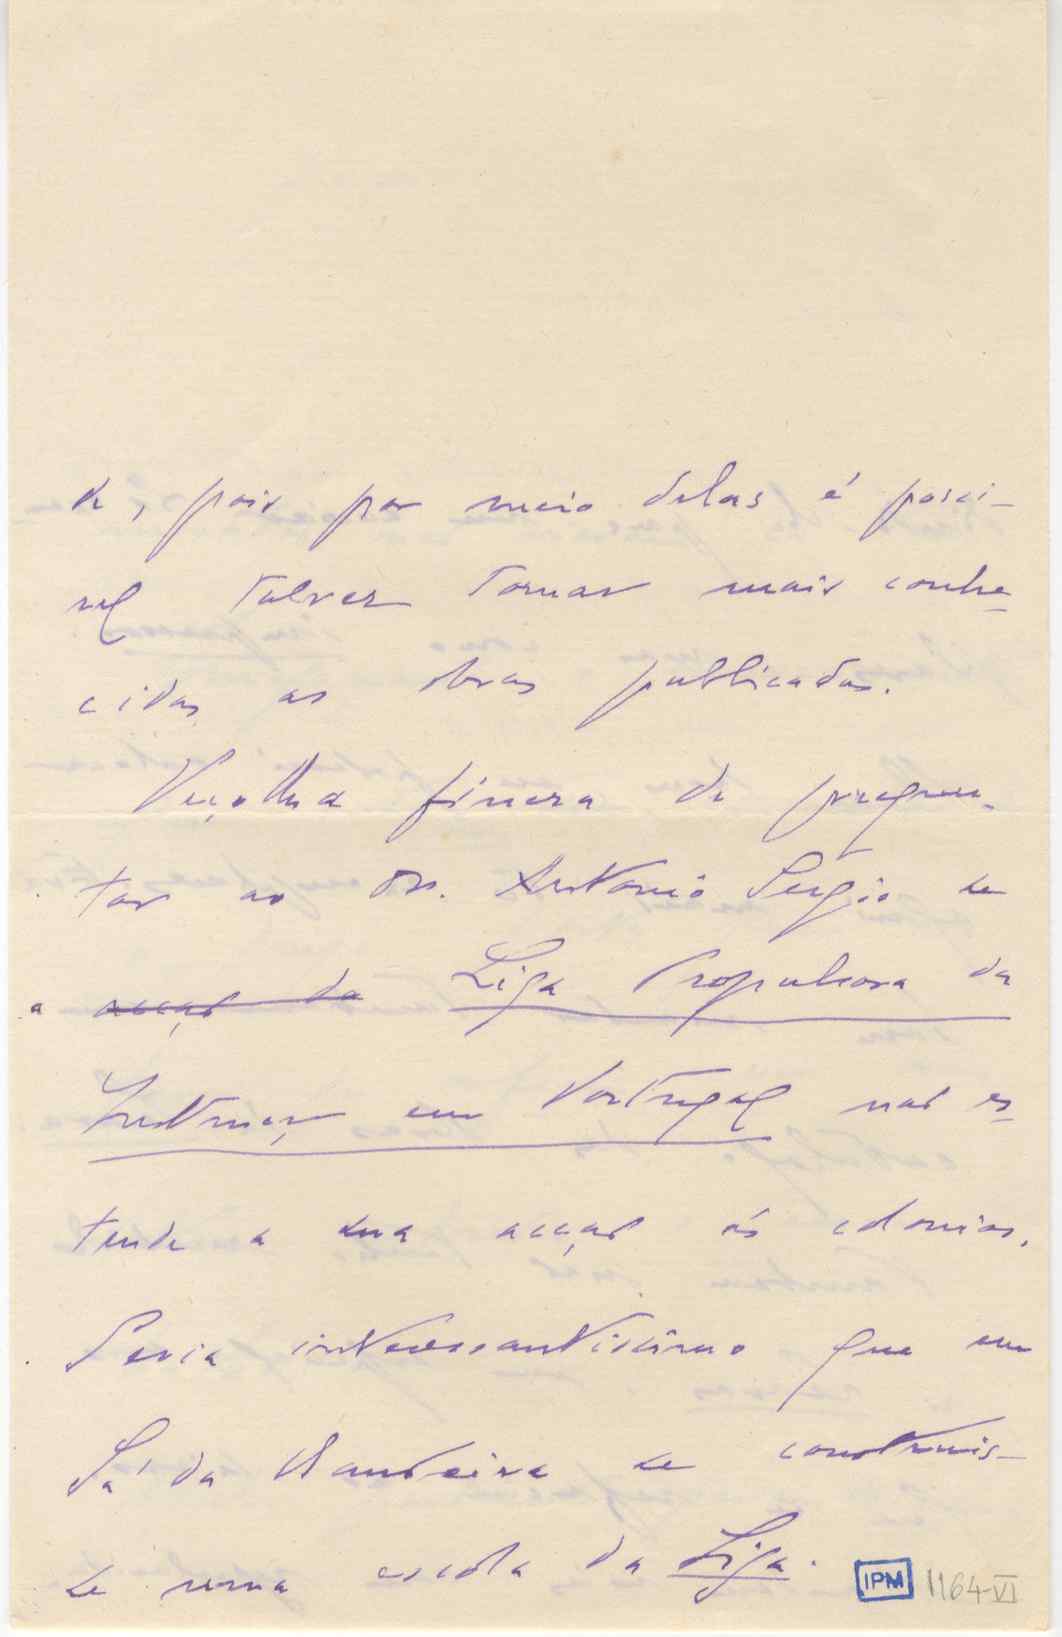 de, pois por meio delas é possi-
vel talvez tornar mais conhe-
cidas as obras publicadas.
Peço lhe a fineza de pregun-
tar ao Dr. Antonio Sergio se
a acção da Liga Propulsora da
Instrução em Portugal não es-
tende a sua acção ás colonias.
Seria interessantissimo que em
Sá da Bandeira se construis-
se uma escola da Liga.
IPM 1164-VI